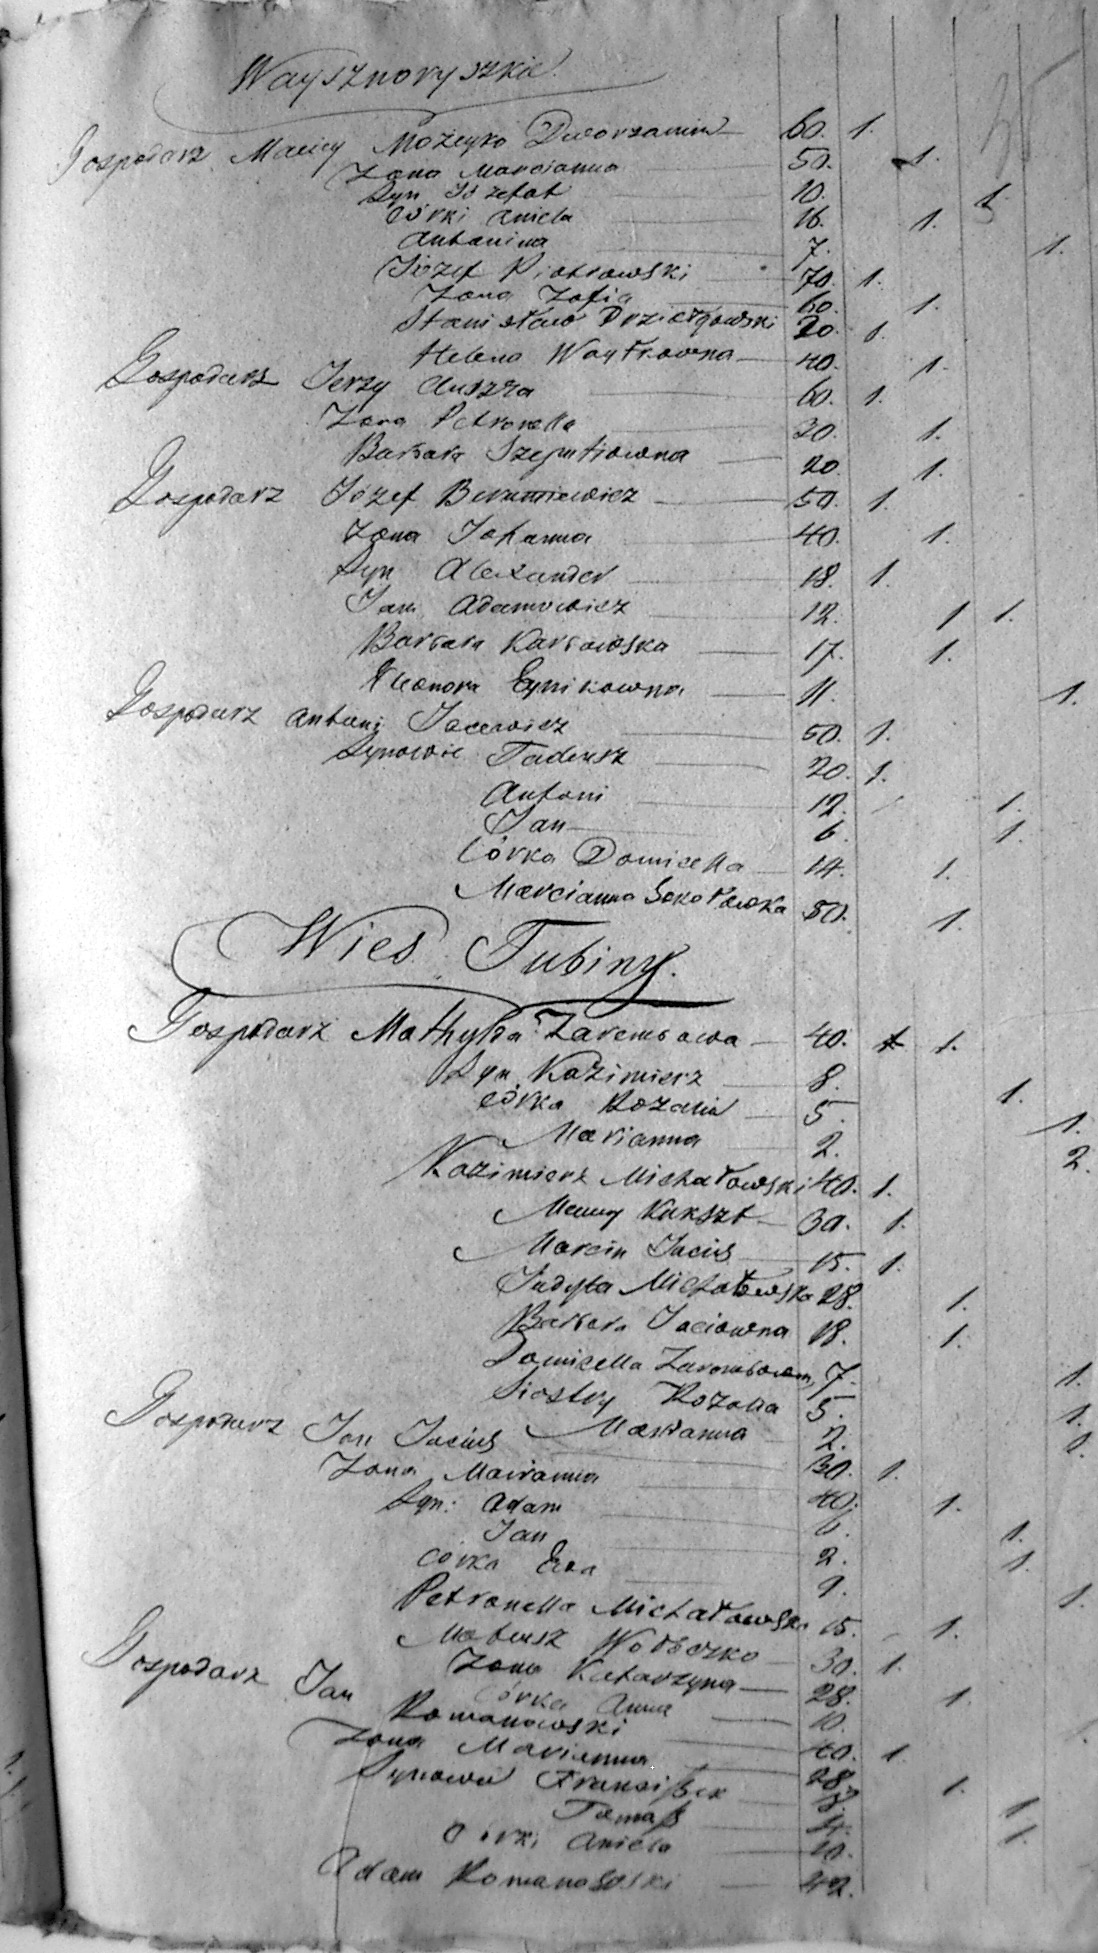 Waysznoryszkie.
Gospodarz Maciey Możeyko Dworzanin 60. 1.
Żona Marcianna 50. 1.
Syn Józefat 10. 1.
Córki Aniela 16. 1.
Antonina 7. 1.
Józef Piotrowski 70. 1.
Żona Zofia 60. 1.
Stanisław 20. 1.
Helena Waytkowna 40. 1.
Gospodarz Jerzy Auszra 60. 1.
Żona Petronella 30. 1.
Barbara 20. 1.
Gospodarz Józef 50. 1.
Żona Johanna 40. 1.
Syn Alexander 18. 1.
Jan Adamowicz 12. 1 1.
Barbara Karbowska 17. 1.
Eleonora 11. 1.
Gospodarz Antoni Jacewicz 50. 1.
Synowie Tadeusz 20. 1.
Antoni 12. 1.
Jan 6. 1.
Córka Domicella 14. 1.
Marcianna Sokołowska 50. 1.
Wies Tubiny.
Gospodarz Mathylda Zarembowa 40. 1.
Syn Kazimierz 8. 1.
Córka Rozalia 5. 1.
Marianna 2. 2.
Kazimierz Michałowski 40. 1.
Kukszt 30. 1.
Marcin Jacius 15. 1.
Judyta Michałowska 28. 1.
Barbara Jaciowna 18. 1.
Domicella 7. 1.
Siostry Rozalia 5. 1.
Marianna 2. 1.
Gospodarz Jan Jacius 30. 1.
Żona Marianna 40. 1.
Syn: Adam 6. 1.
Jan 2. 1.
Córka Ewa 9. 1.
Petronella Michałowska 15. 1.
Mateusz 30. 1.
Żona Katarzyna 28. 1.
Córka Anna 10.
Gospodarz Jan Romanowski 40. 1.
Żona Marianna 28. 1.
Synowie Franciszek 1.
Tomasz 4. 1.
Córki Aniela 10.
Adam Romanowski 42.